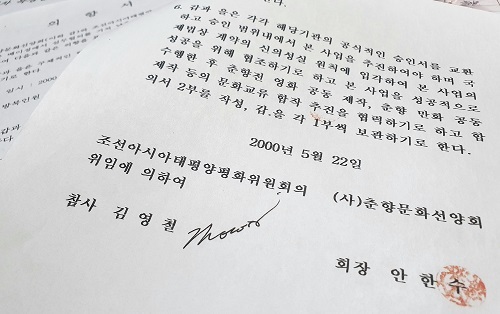 의 향 서
6. 갑과 을은 각각 해당기관의 공식적인 승인서를 교환
하고 승인 범위내에서 본 사업을 추진하여야 하며 국
제법상 계약의 신의성실 원칙에 입각하여 본 사업의
성공을 위해 협조하기로 하고 본 사업을 성공적으로
수행한 후 춘향전 영화 공동 제작, 춘향 만화 공동
제작 등의 문화교류 합작 추진을 협력하기로 하고 합
의서 2부를 작성, 갑.을 각 1부씩 보관하기로 한다.
2000년 5월 22일
조선아시아태평양평화위원회의
위임에 의하여
참사 김영철
(사)춘향문화선양회
회장 안한수